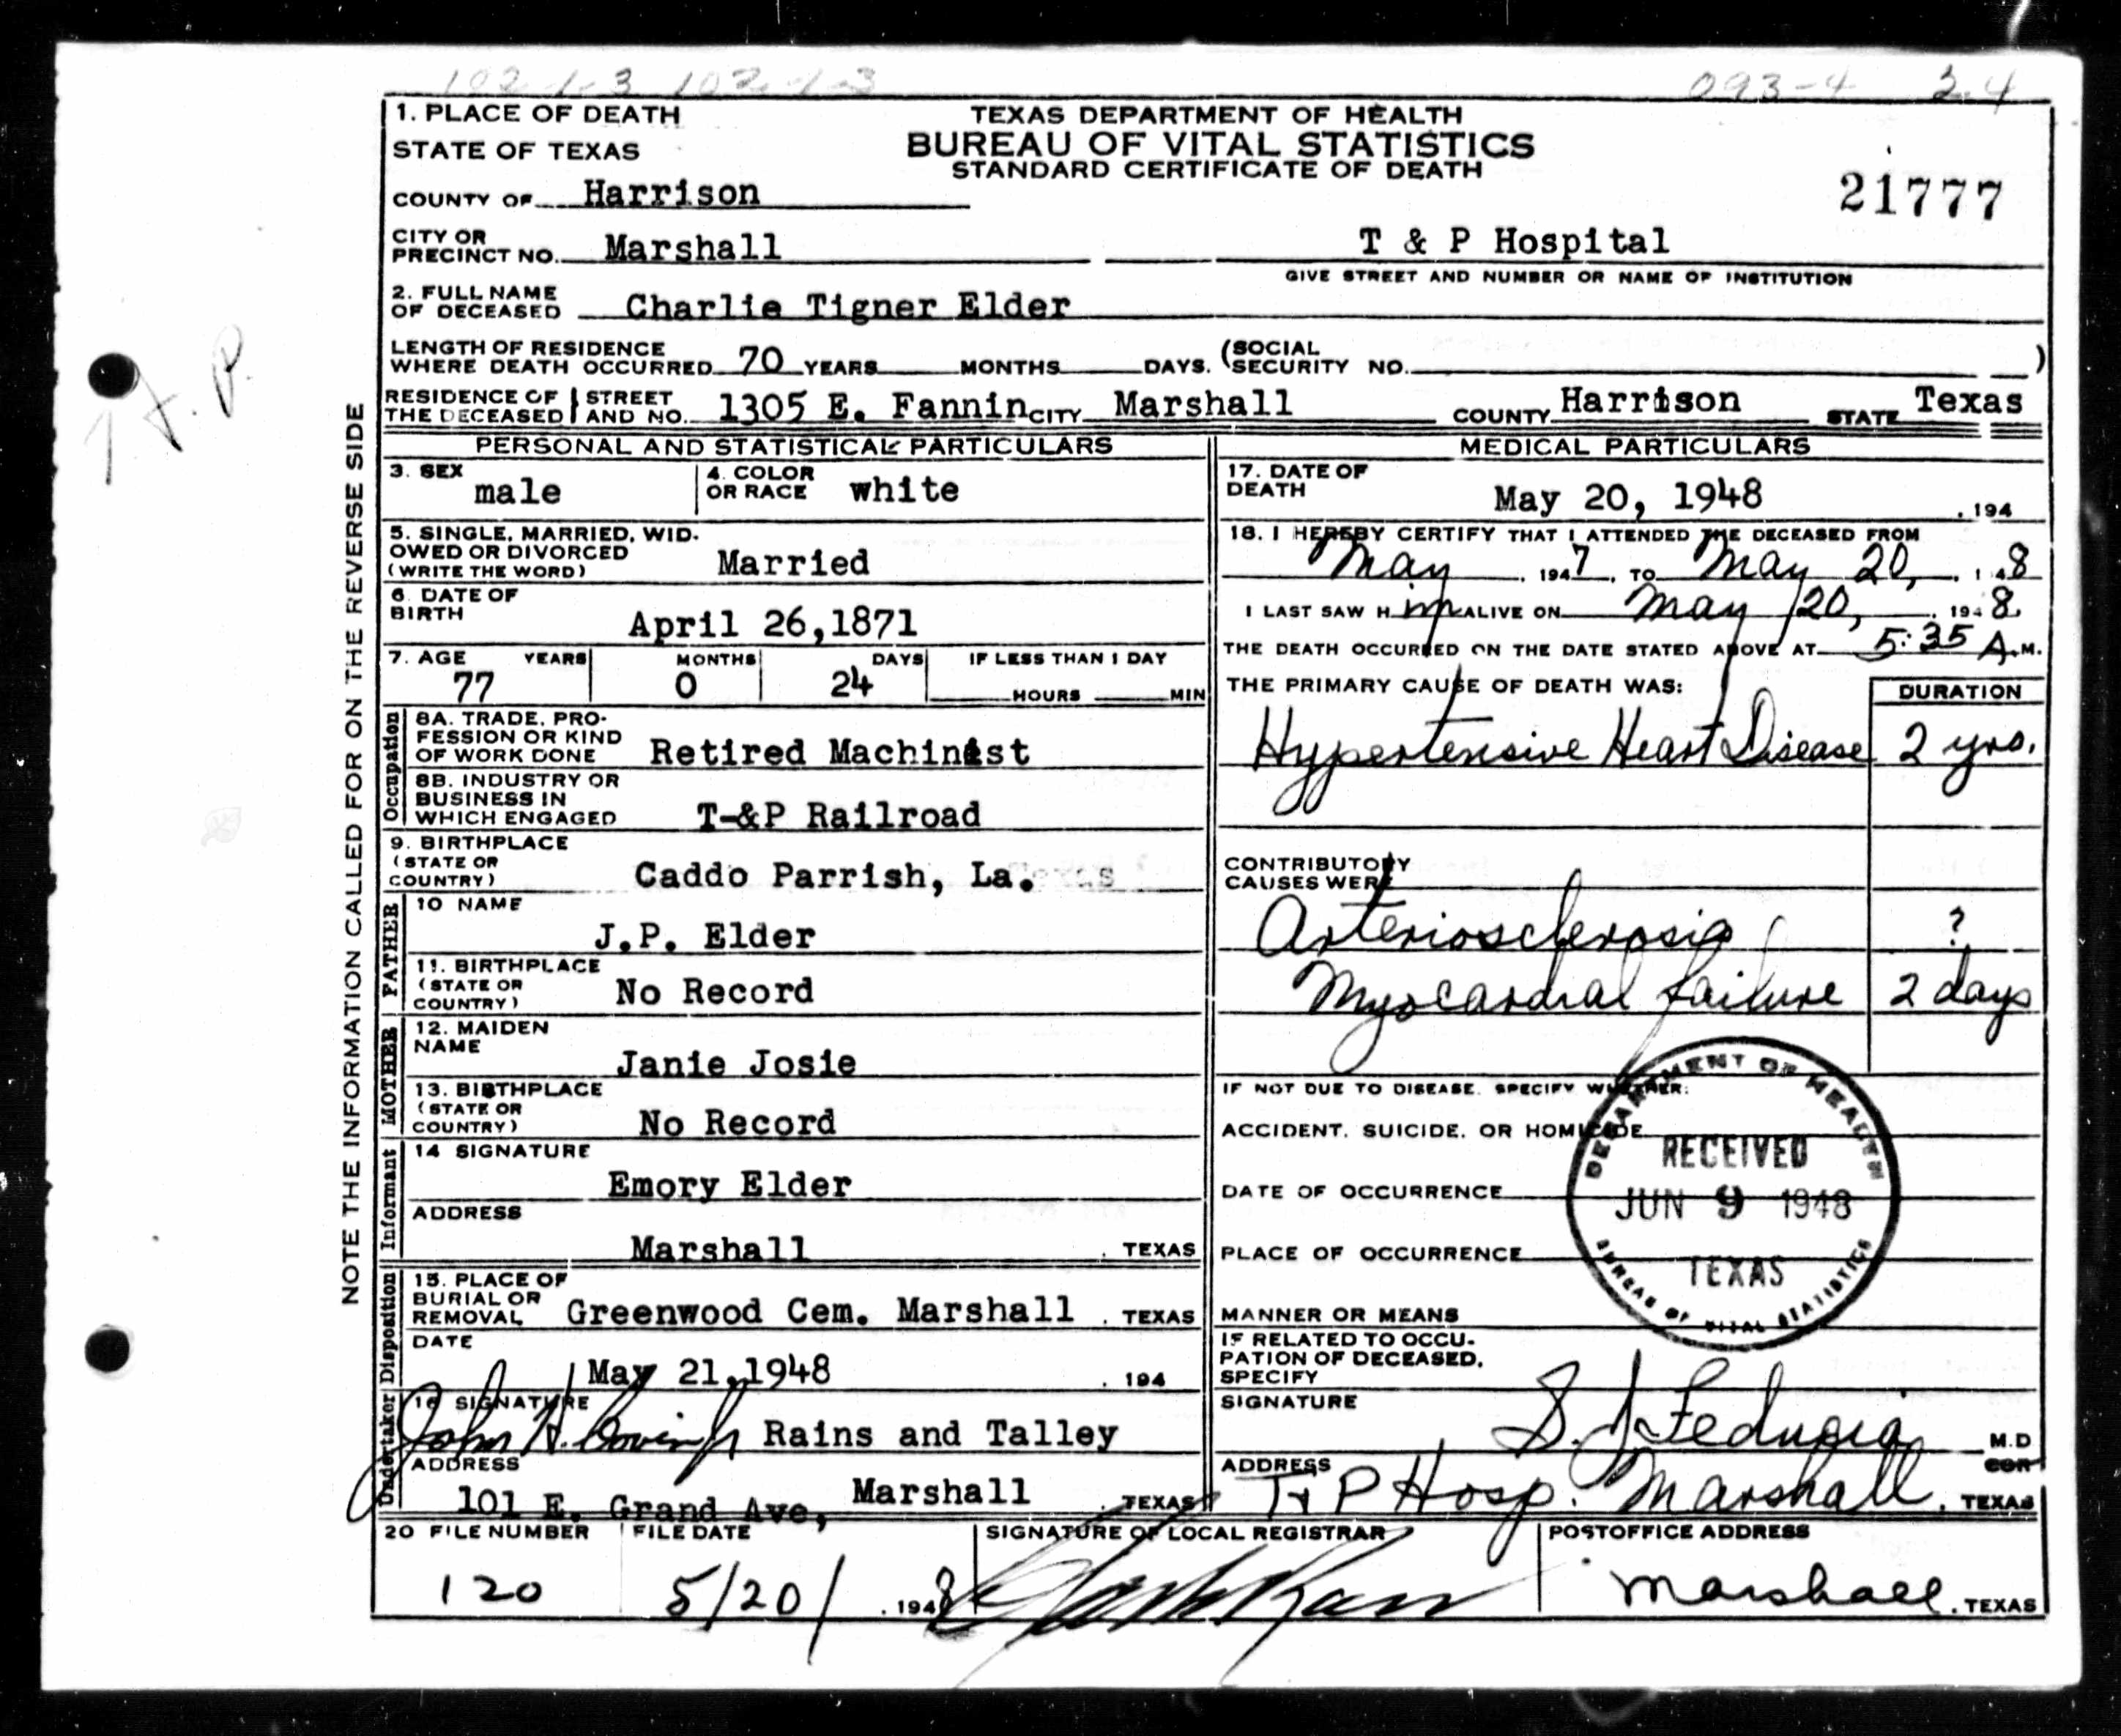 102-1-3 102-1-3
093-4 24
1. PLACE OF DEATH
STATE OF TEXAS
TEXAS DEPARTMENT OF HEALTH
BUREAU OF VITAL STATISTICS
STANDARD CERTIFICATE OF DEATH
COUNTY OF Harrison
21777
CITY OR
PRECINCT NO. Marshall
T & P Hospital
GIVE STREET AND NUMBER OR NAME OF INSTITUTION
2. FULL NAME
OF DECEASED Charlie Tigner Elder
LENGTH OF RESIDENCE
WHERE DEATH OCCURRED 70 YEARS MONTHS DAYS. (SOCIAL
SECURITY NO. )
RESIDENCE OF THE DECEASED STREET AND NO. 1305 E. Fannin CITY Marshall COUNTY Harrison STATE Texas
NOTE THE INFORMATION CALLED FOR ON THE REVERSE SIDE
PERSONAL AND STATISTICAL PARTICULARS
3. SEX male
4. COLOR OR RACE white
5. SINGLE, MARRIED, WID-
OWED OR DIVORCED
(WRITE THE WORD) Married
6. DATE OF
BIRTH April 26,1871
7. AGE YEARS MONTHS DAYS IF LESS THAN 1 DAY
77 0 24 HOURS MIN
Occupation
8A. TRADE, PRO-
FESSION OR KIND
OF WORK DONE Retired Machinist
8B. INDUSTRY OR
BUSINESS IN
WHICH ENGAGED T-&P Railroad
9. BIRTHPLACE
(STATE OR
COUNTRY) Caddo Parrish, La.
FATHER
10 NAME
J.P. Elder
11. BIRTHPLACE
(STATE OR
COUNTRY) No Record
MOTHER
12. MAIDEN
NAME
Janie Josie
13. BIRTHPLACE
(STATE OR
COUNTRY) No Record
Informant
14 SIGNATURE
Emory Elder
ADDRESS
Marshall , TEXAS
Disposition
15. PLACE OF
BURIAL OR
REMOVAL Greenwood Cem. Marshall , TEXAS
DATE
May 21,1948 , 194
Undertaker
16 SIGNATURE
John H. Rains and Talley
ADDRESS
101 E. Grand Ave, Marshall , TEXAS
MEDICAL PARTICULARS
17. DATE OF
DEATH May 20, 1948 , 194
18. I HEREBY CERTIFY THAT I ATTENDED THE DECEASED FROM
May , 1947, TO May 20, , 1 48
I LAST SAW H im ALIVE ON May 20, , 19 8
THE DEATH OCCURRED ON THE DATE STATED ABOVE AT 5:35 A.M.
THE PRIMARY CAUSE OF DEATH WAS: DURATION
Hypertensive Heart Disease 2 yrs.
CONTRIBUTORY
CAUSES WERE
Arteriosclerosis ?
Myocardial failure 2 days
IF NOT DUE TO DISEASE, SPECIFY WHETHER:
ACCIDENT, SUICIDE, OR HOMICIDE
DATE OF OCCURRENCE
PLACE OF OCCURRENCE
MANNER OR MEANS
DEPARTMENT OF HEALTH
RECEIVED
JUN 9 1948
TEXAS
BUREAU OF VITAL STATISTICS
IF RELATED TO OCCU-
PATION OF DECEASED,
SPECIFY
SIGNATURE S. J Fedugia M.D
COR
ADDRESS T & P Hosp. Marshall, TEXAS
20 FILE NUMBER FILE DATE SIGNATURE OF LOCAL REGISTRAR POSTOFFICE ADDRESS
120 5/20/ , 1948 Marshall, TEXAS